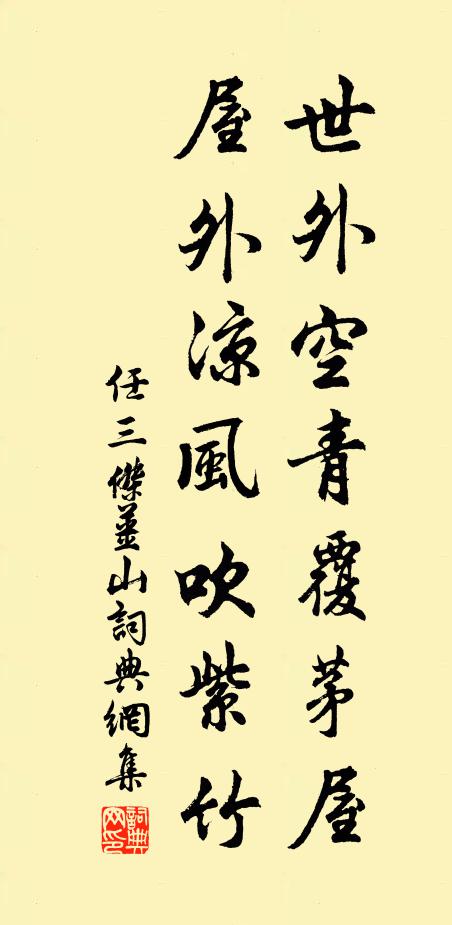 世外空青覆茅屋
屋外凉風吹紫竹
任三傑薑山詞典網集
詞典网印